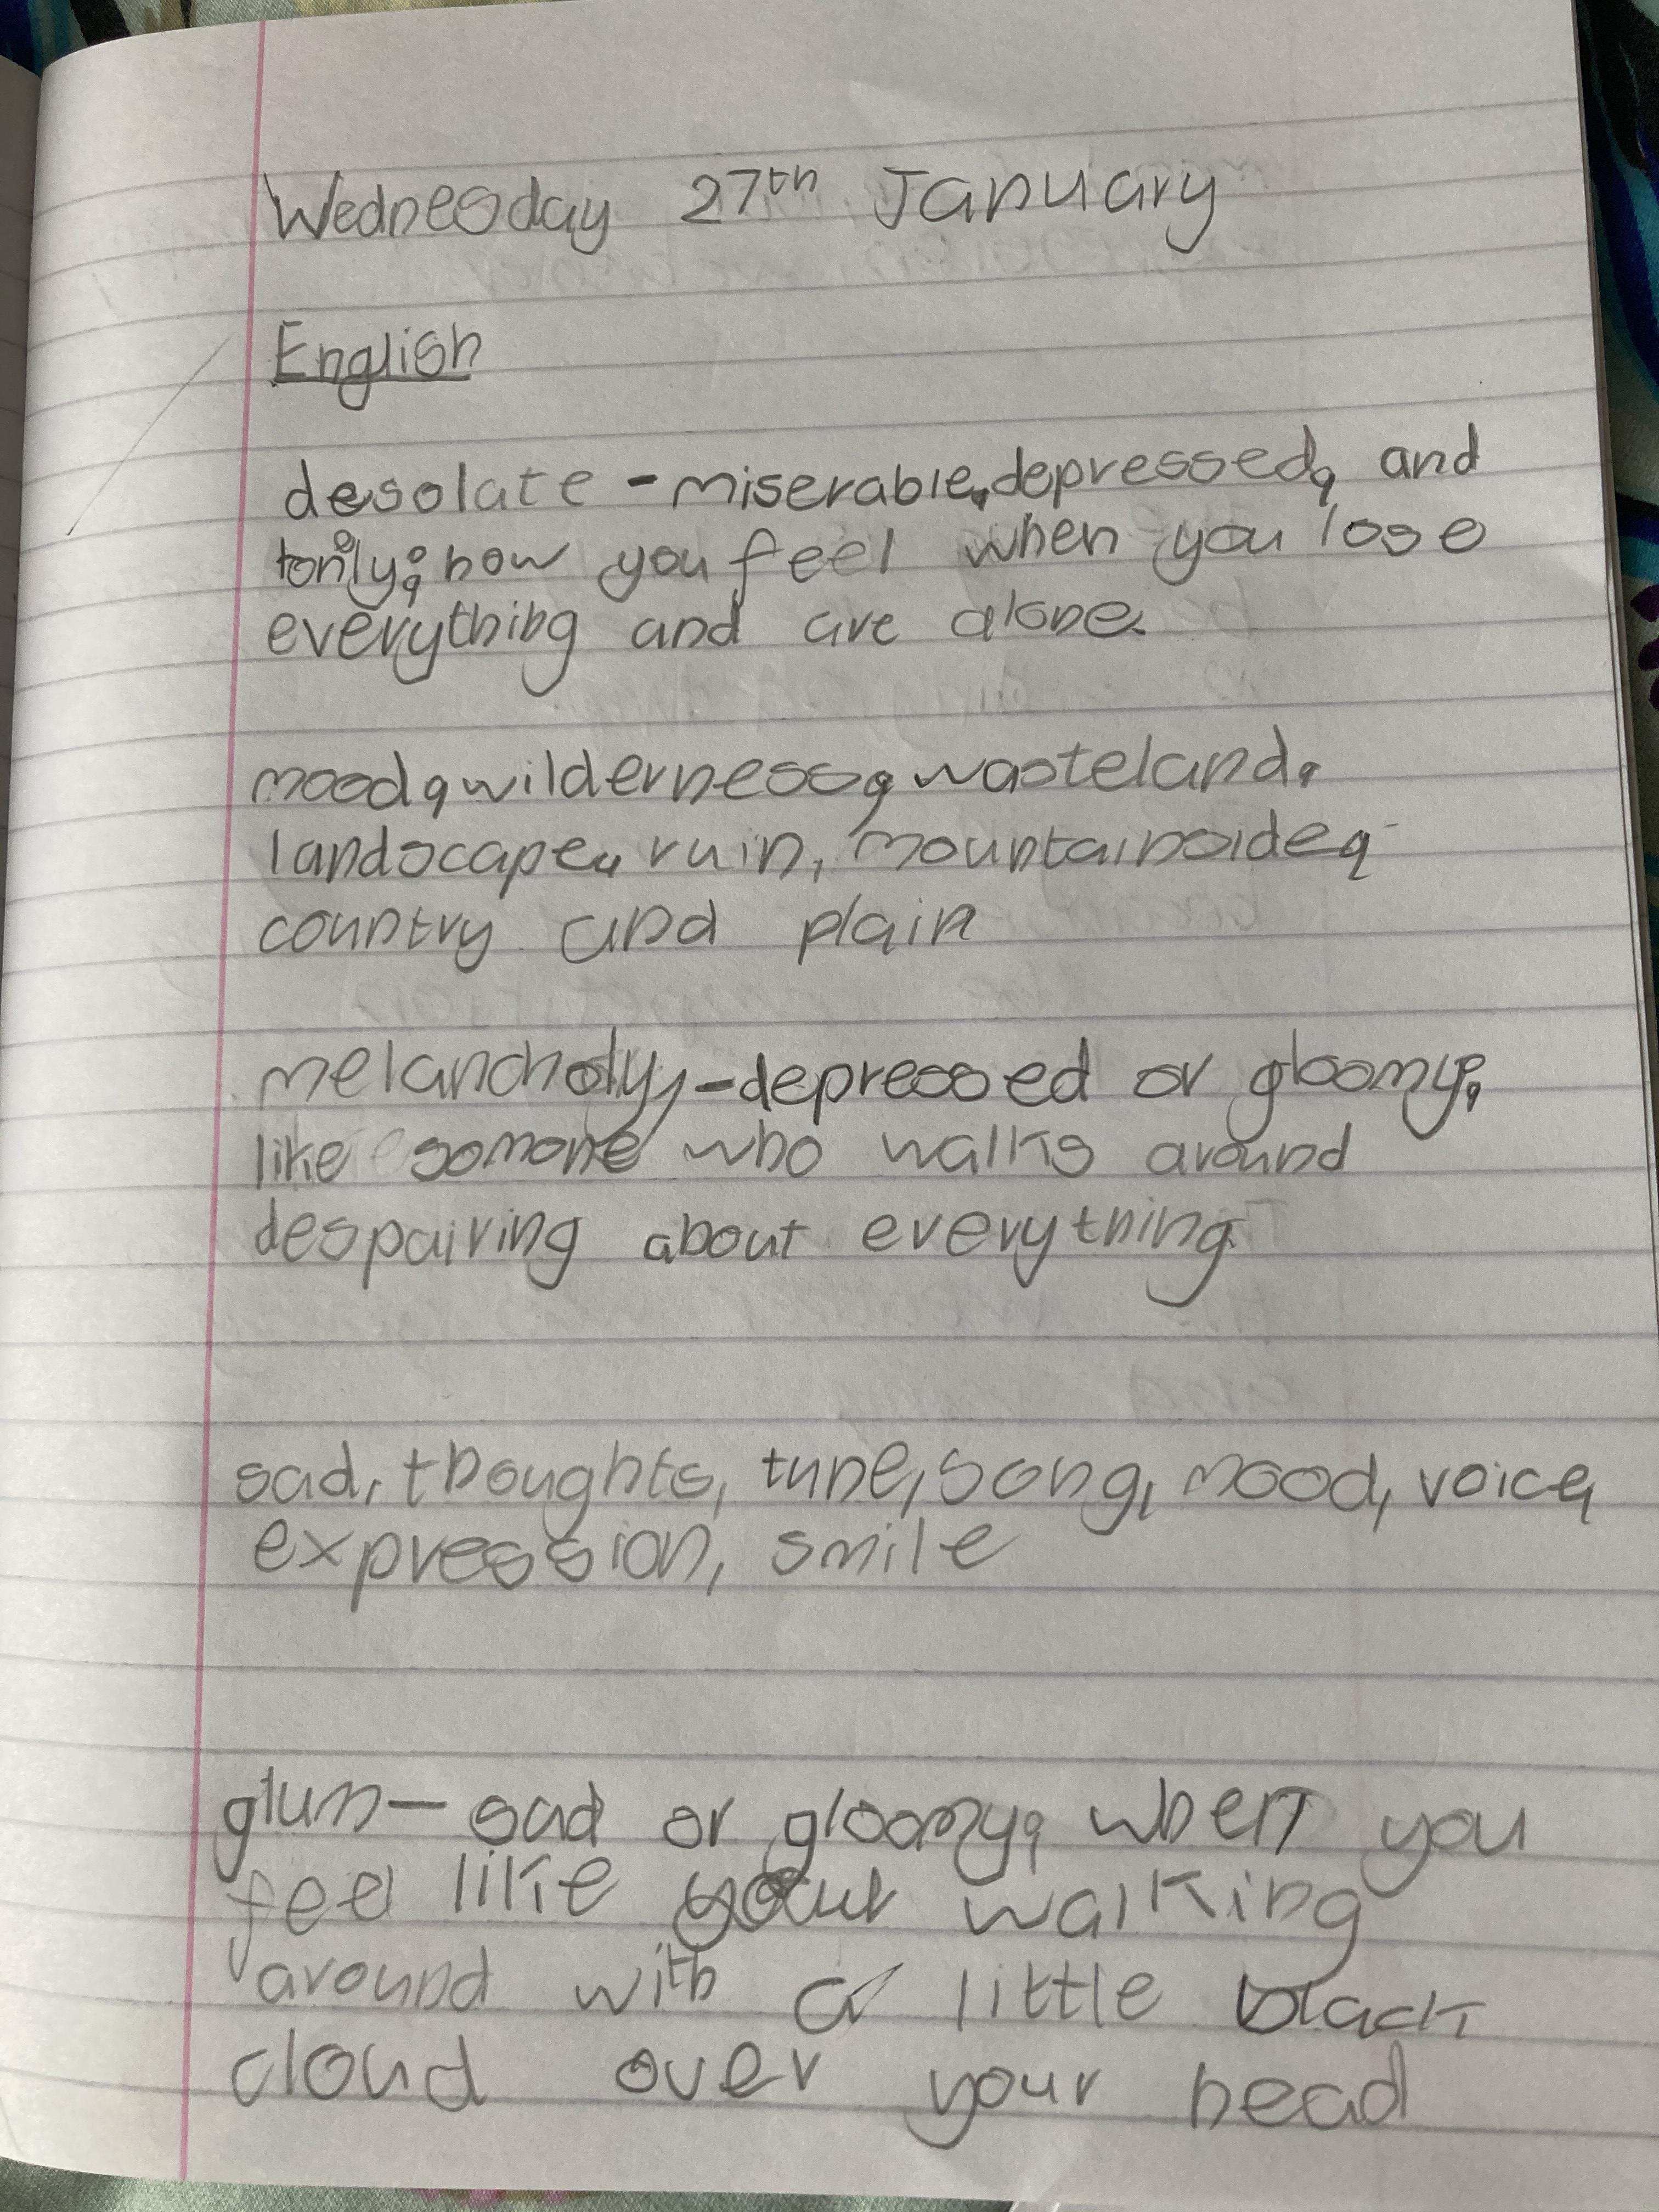 Wednesday 27th January
English
desolate - miserable, depressed, and
how you feel when you lose
everything and are alone.
mood, wilderness, wasteland,
landscape, ruin, mountainside,
country and plain
melancholy, - depressed or gloomy;
like somone who walks around
despairing about everything.
sad, thoughts, tune, song, mood, voice,
expression, smile
glum - sad or gloomy; when you
feel like your walking
around with a little black
cloud over your head